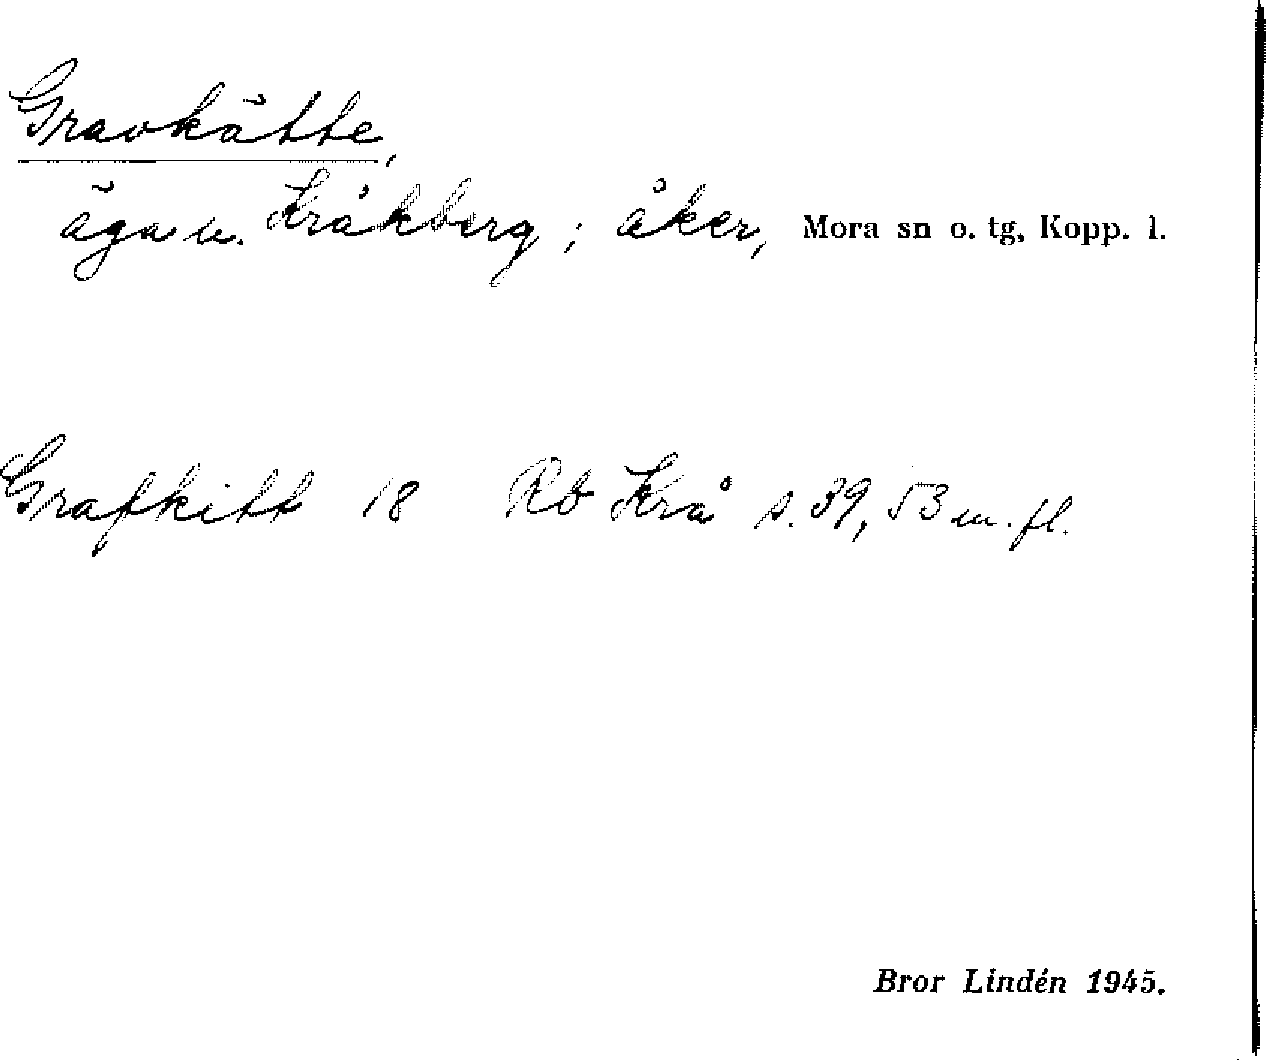 Gravkätte,
äga u. Kråkberg; åker, Mora sn o. tg, Kopp. l.
Grafkitt 18 Rb Krå s. 39, 53 m. fl.
Bror Lindén 1945.